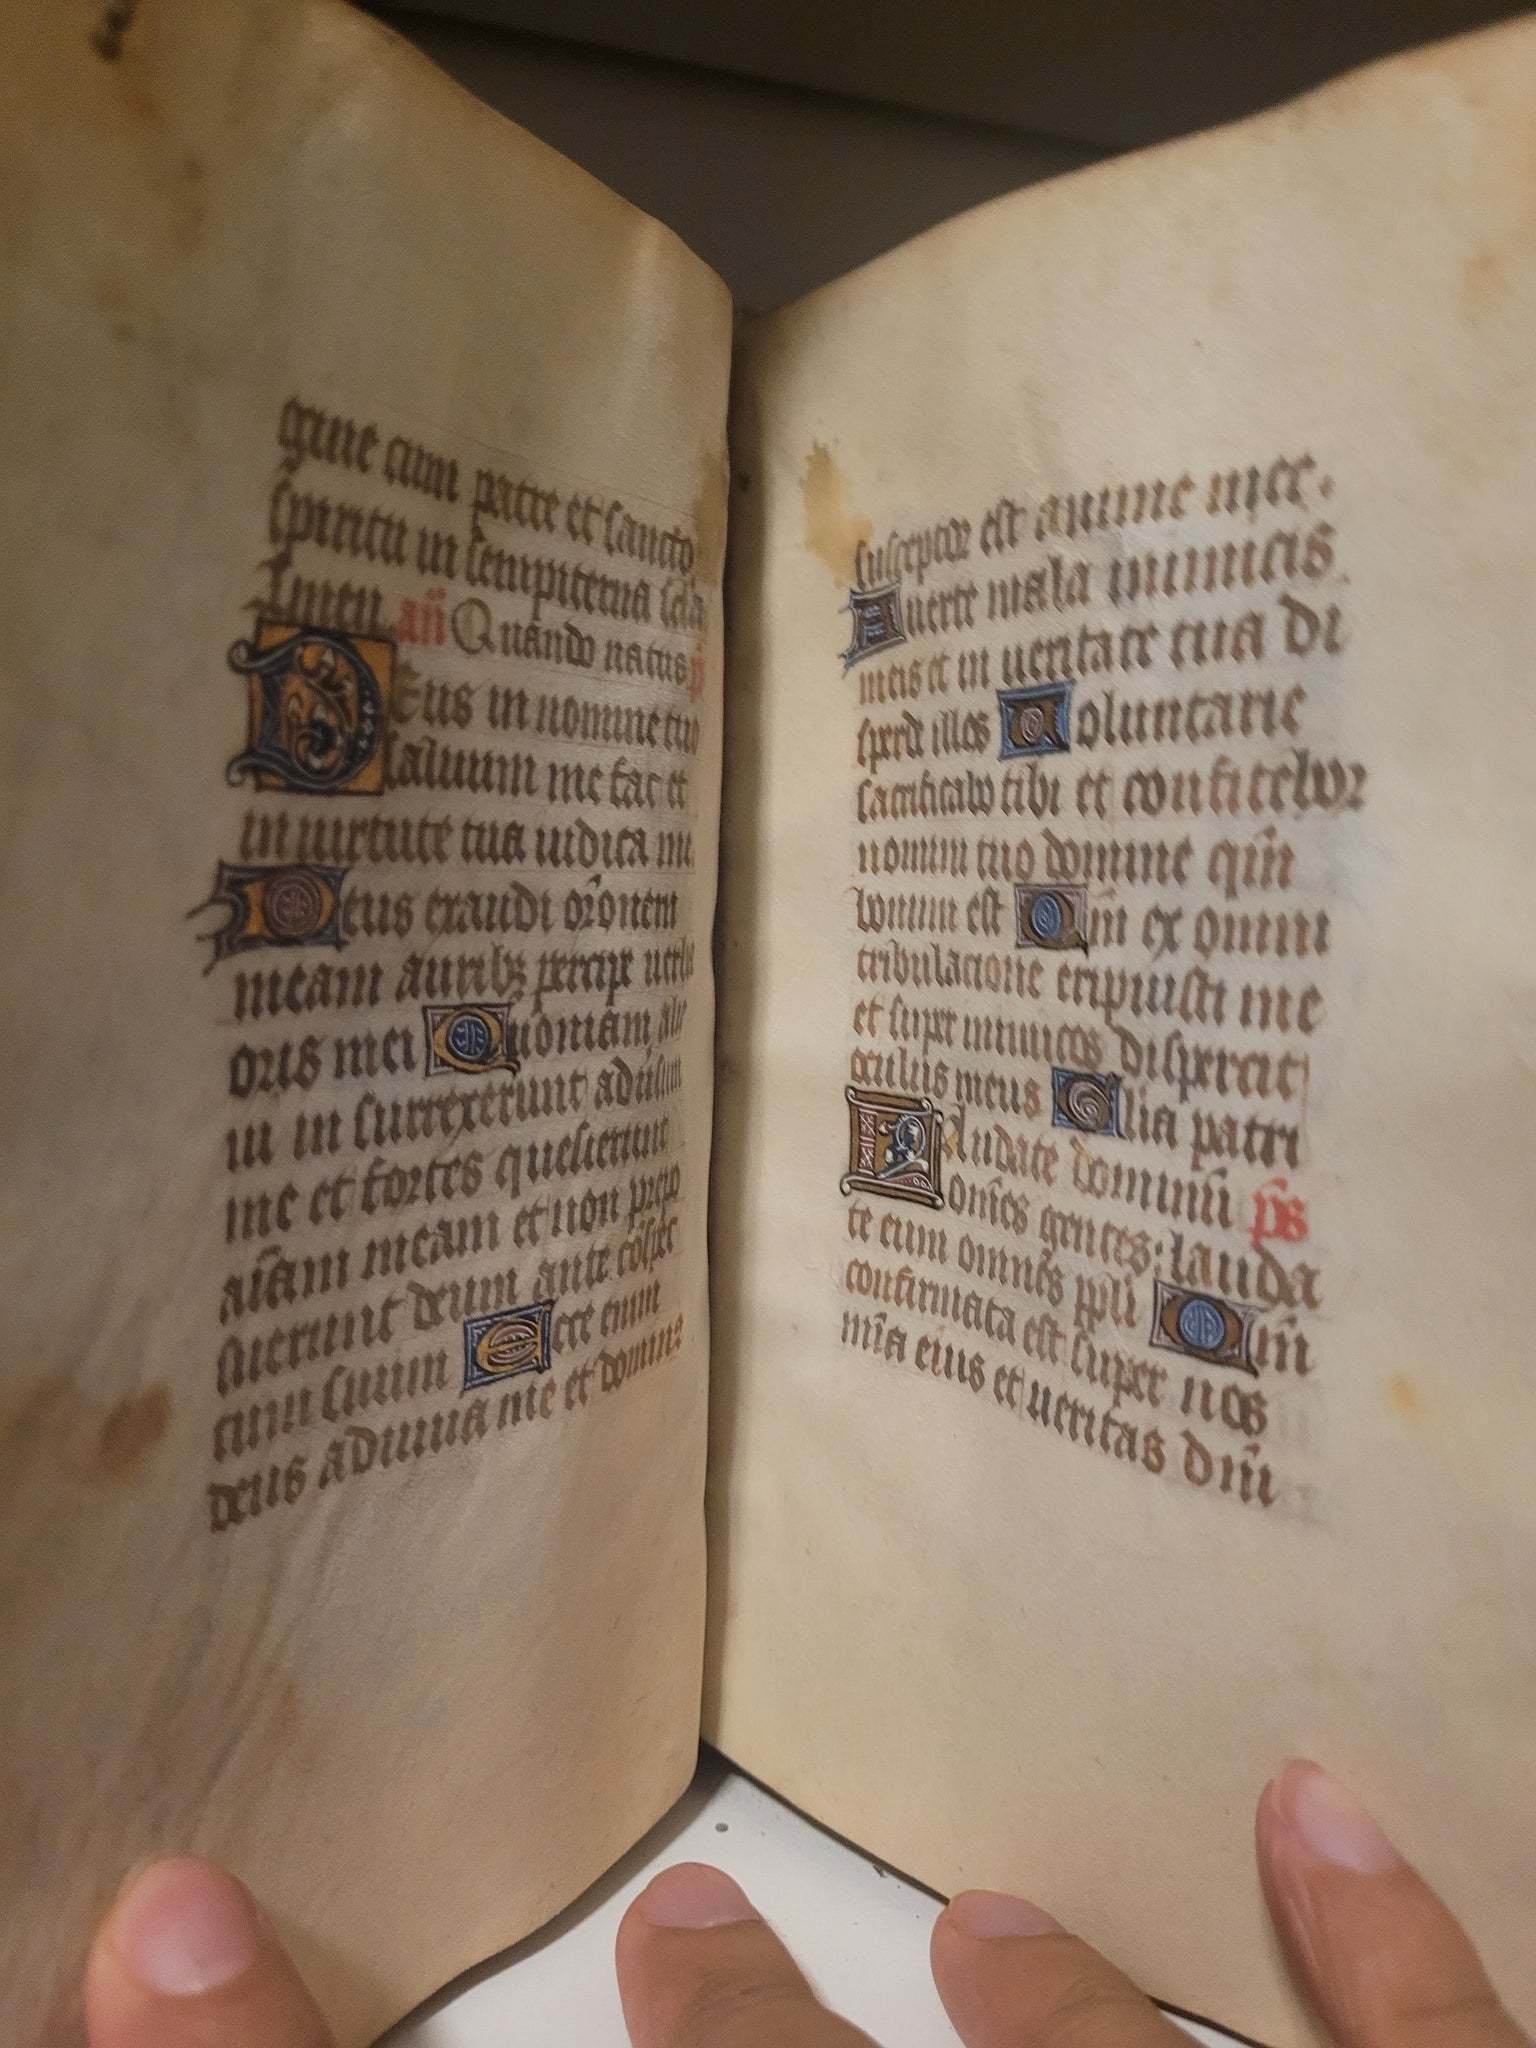 gine cum patre et sancto
spiritu in sempiterna scla
Amen añ Quando natus ps̄
Deus in nomine tuo
saluum me fac et
in uirtute tua iudica me
Deus exaudi or̄onem
meam aurib₃ percipe uerba
oris mei Quoniam alie
ni in surrexerunt aduersum
me et fortes quesierunt
aīam meam et non propo
suerunt deum ante cōspec
tum suum Ecce enim
deus adiuua me et dominus
susceptor est anime mee.
Auerte mala inimicis
meis et in ueritate tua di
sperd illos Uoluntarie
sacrificabo tibi et confitebor
nomini tuo domine qm̄
bonum est Qm̄ ex omni
tribulacione eripuisti me
et super inimicos dispexit
oculus meus Glia patri
Laudate dominū ps̄
om̄es gentes: lauda
te eum omnēs ppli Qm̄
confirmata est super nos
mīa eius et ueritas dm̄i